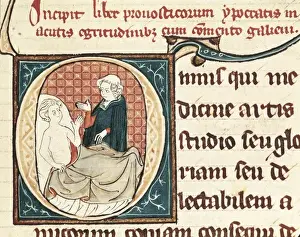 Incipit liber pronosticorum ypocratis in
acutis egritudinibz cum comento galieni
Omnis qui me
dicine artis
studio seu glo
riam seu de
lectabilem a
micorum copiam consequi de